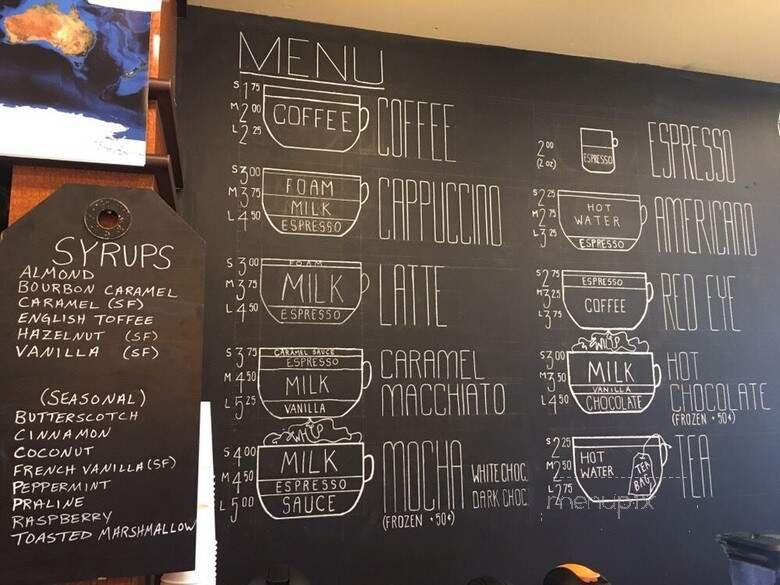 MENU
S 1 75
M 2 00
L 2 25
COFFEE
COFFEE
S 3 00
M 3 75
L 4 50
FOAM
MILK
ESPRESSO
CAPPUCCINO
S 3 00
M 3 75
L 4 50
FOAM
MILK
ESPRESSO
LATTE
S 3 75
M 4 50
L 5 25
CARAMEL SAUCE
ESPRESSO
MILK
VANILLA
CARAMEL
MACCHIATO
S 4 00
M 4 50
L 5 00
WHIP
MILK
ESPRESSO
SAUCE
MOCHA
WHITE CHOC.
DARK CHOC.
(FROZEN +50¢)
2 00
(2 oz)
ESPRESSO
ESPRESSO
S 2 25
M 2 75
L 3 25
HOT
WATER
ESPRESSO
AMERICANO
S 2 75
M 3 25
L 3 75
ESPRESSO
COFFEE
RED EYE
S 3 00
M 3 50
L 4 50
WHIP
MILK
VANILLA
CHOCOLATE
HOT
CHOCOLATE
(FROZEN +50¢)
S 2 25
M 2 50
L 2 75
HOT
WATER
TEA
BAG
TEA
menupix
SYRUPS
ALMOND
BOURBON CARAMEL
CARAMEL (SF)
ENGLISH TOFFEE
HAZELNUT (SF)
VANILLA (SF)
(SEASONAL)
BUTTERSCOTCH
CINNAMON
COCONUT
FRENCH VANILLA (SF)
PEPPERMINT
PRALINE
RASPBERRY
TOASTED MARSHMALLOW